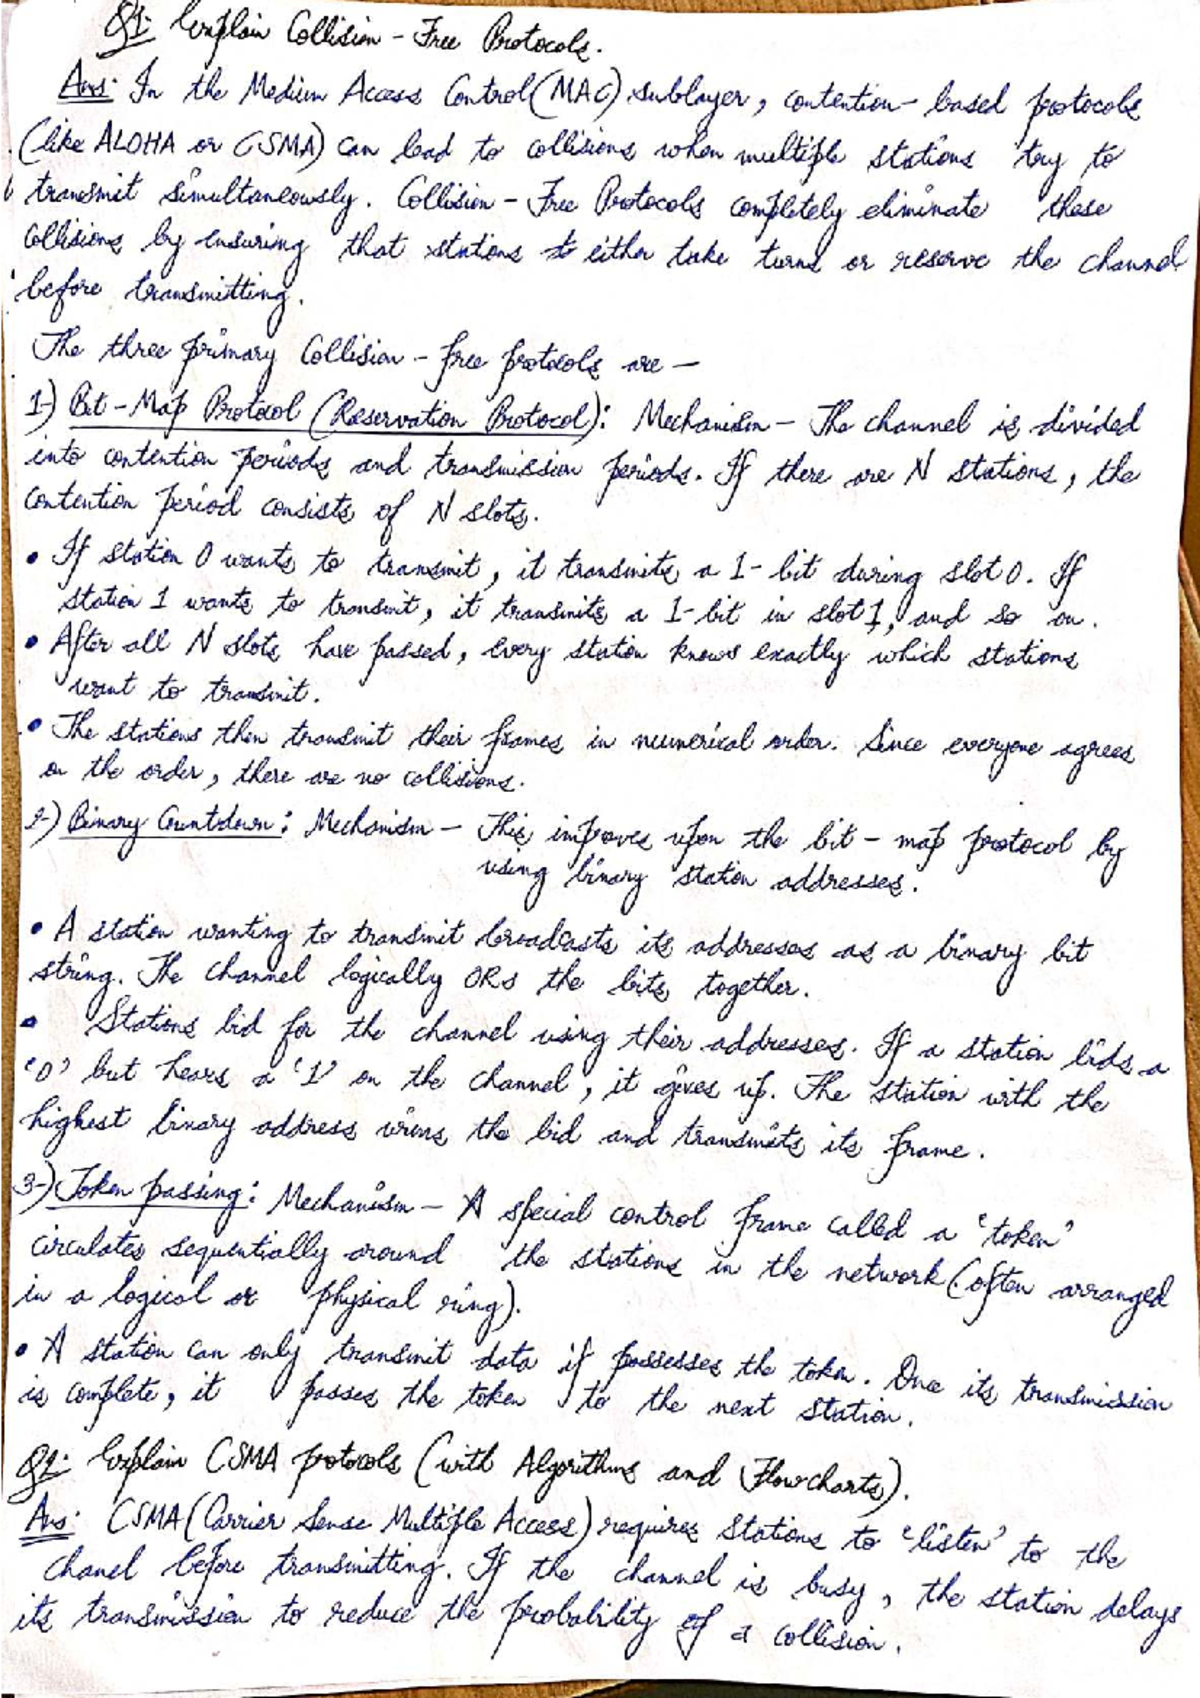 Q1: Explain Collision-Free Protocols.
Ans: In the Medium Access Control (MAC) sublayer, contention-based protocols
(like ALOHA or CSMA) can lead to collisions when multiple stations try to
transmit simultaneously. Collision-Free Protocols completely eliminate these
collisions by ensuring that stations either take turns or reserve the channel
before transmitting.
The three primary Collision-free protocols are —
1-) Bit-Map Protocol (Reservation Protocol): Mechanism — The channel is divided
into contention periods and transmission periods. If there are N stations, the
contention period consists of N slots.
• If station 0 wants to transmit, it transmits a 1-bit during slot 0. If
station 1 wants to transmit, it transmits a 1-bit in slot 1, and so on.
• After all N slots have passed, every station knows exactly which stations
want to transmit.
• The stations then transmit their frames in numerical order. Since everyone agrees
on the order, there are no collisions.
2-) Binary Countdown: Mechanism — This improves upon the bit-map protocol by
using binary station addresses.
• A station wanting to transmit broadcasts its addresses as a binary bit
string. The channel logically ORs the bits together.
• Stations bid for the channel using their addresses. If a station bids a
'0' but hears a '1' on the channel, it gives up. The station with the
highest binary address wins the bid and transmits its frame.
3-) Token passing: Mechanism — A special control frame called a 'token'
circulates sequentially around the stations in the network (often arranged
in a logical or physical ring).
• A station can only transmit data if possesses the token. Once its transmission
is complete, it passes the token to the next station.
Q2: Explain CSMA protocols (with Algorithms and Flowcharts).
Ans: CSMA (Carrier Sense Multiple Access) requires stations to 'listen' to the
chanel before transmitting. If the channel is busy, the station delays
its transmission to reduce the probability of a collision.